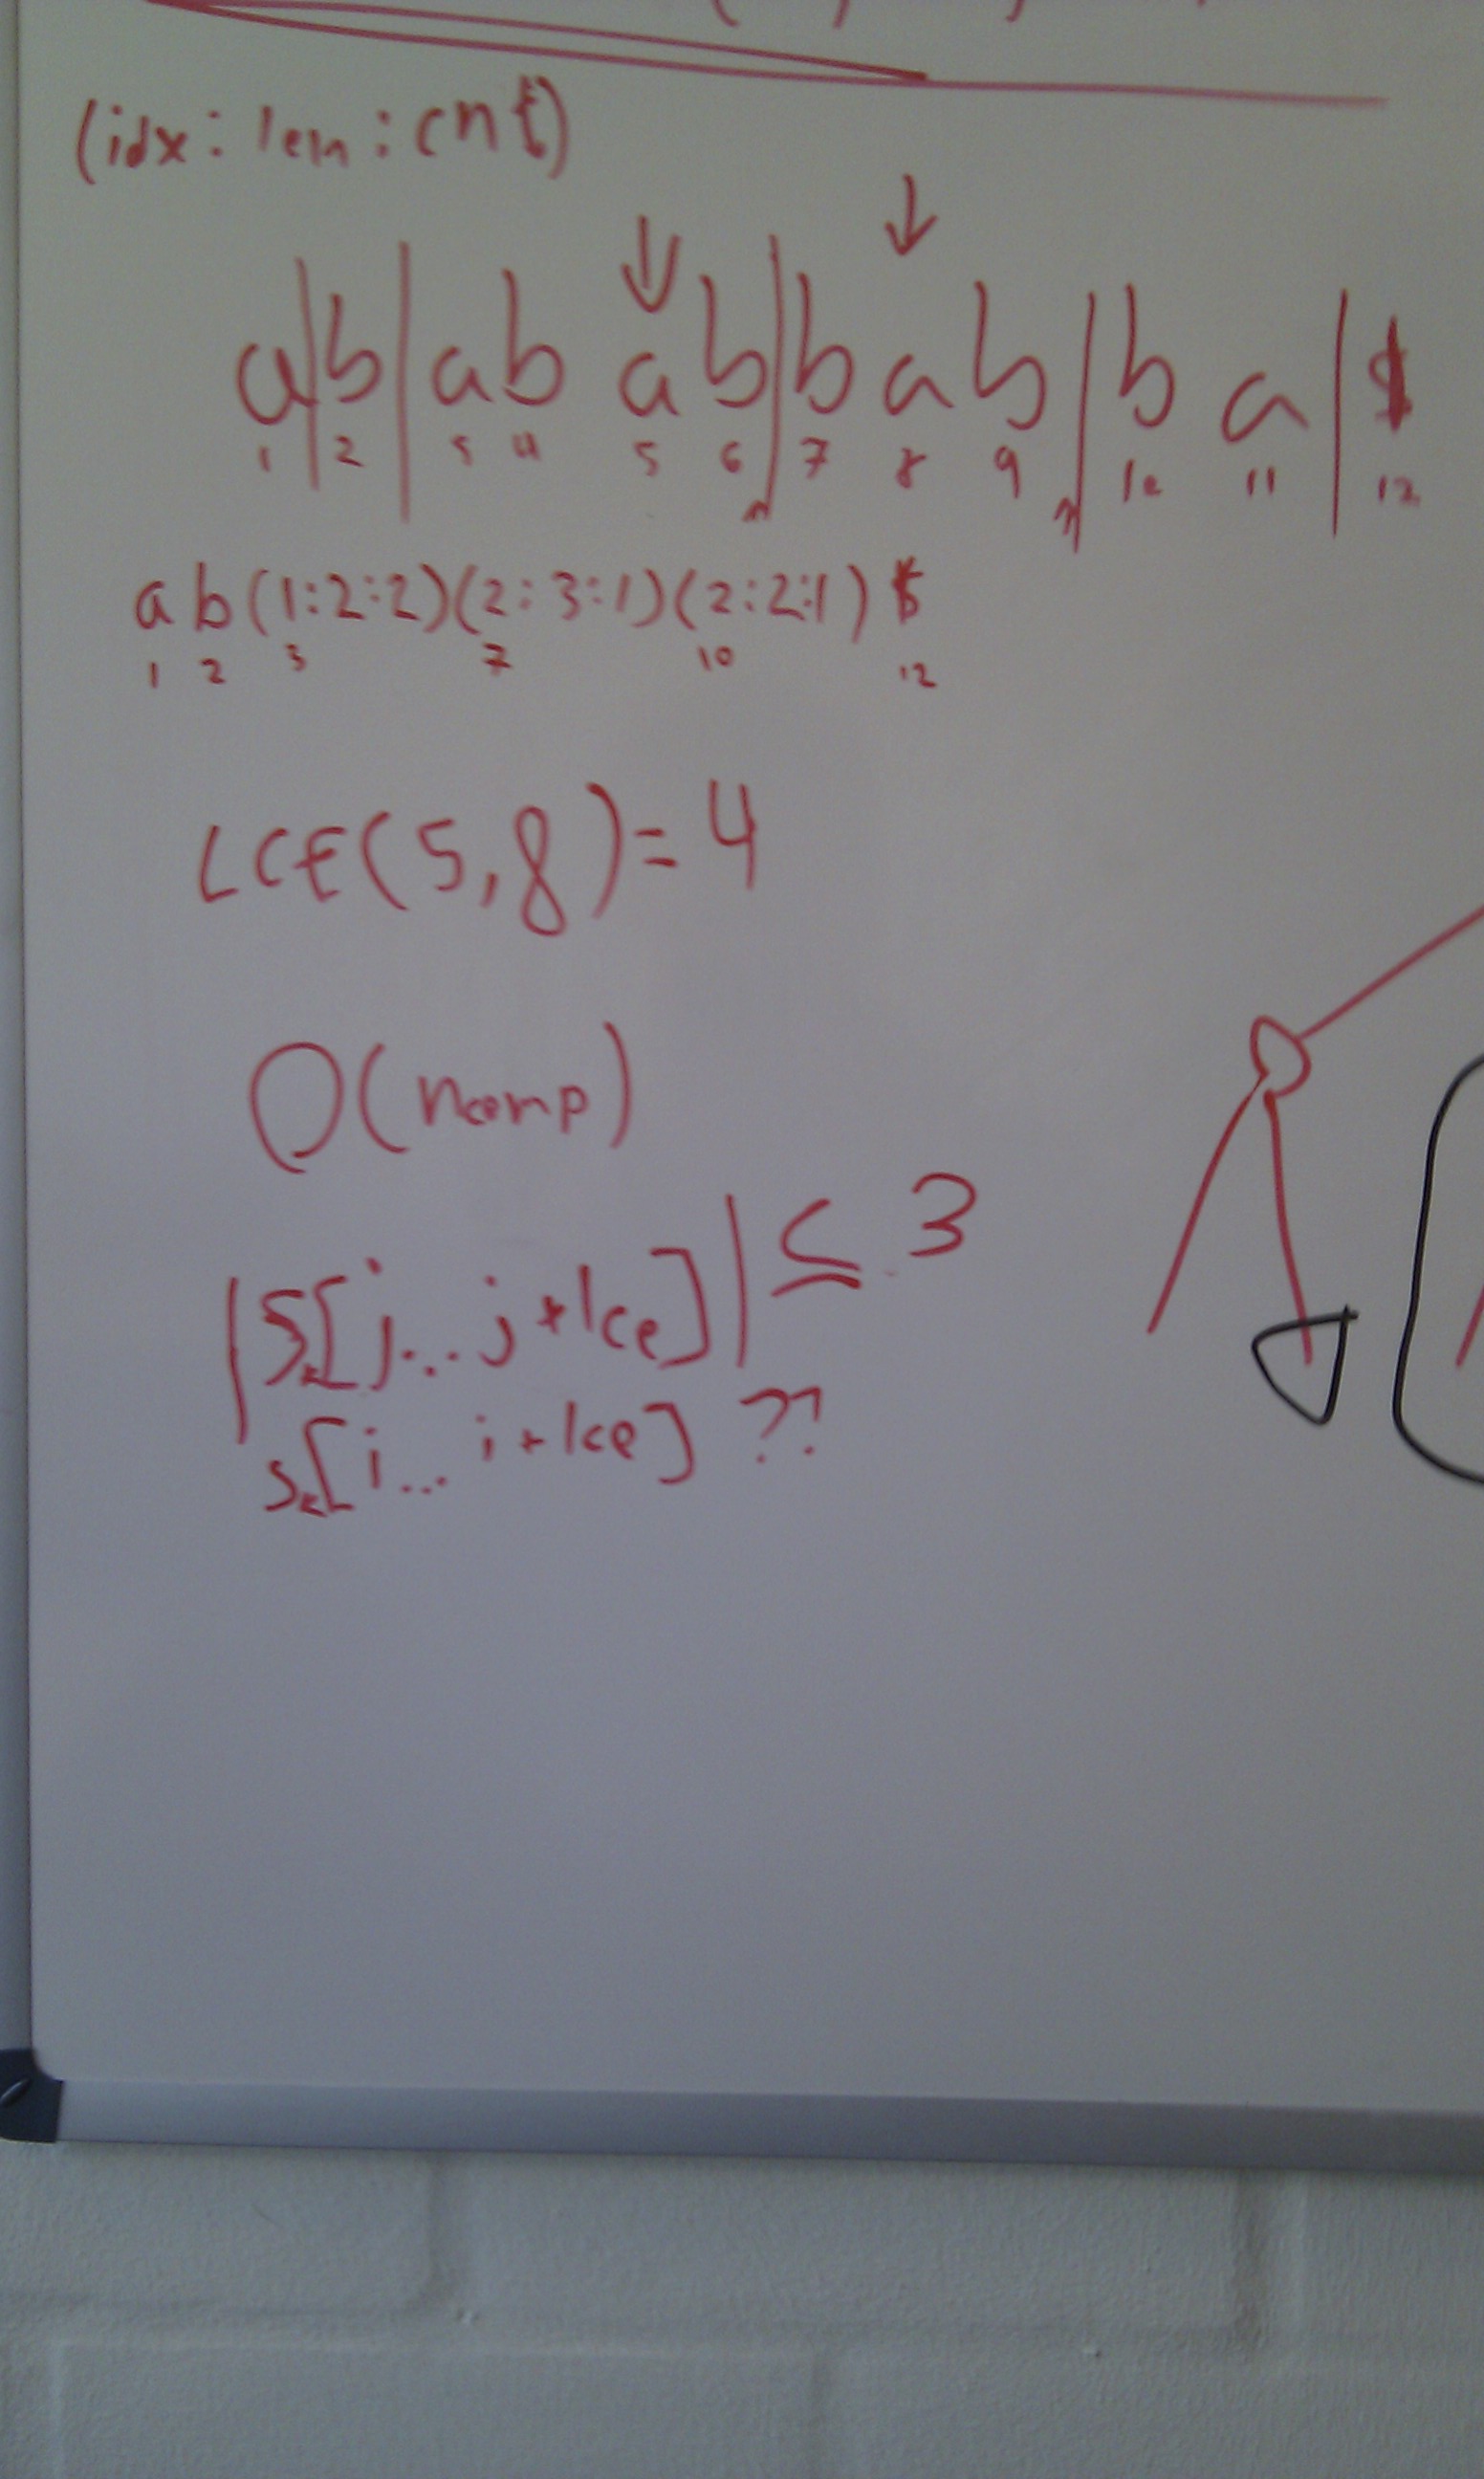 (idx:len:cnt)
a|b|ab ab|bab|ba|$
1 2 3 4 5 6 7 8 9 10 11 12
ab(1:2:2)(2:3:1)(2:2:1)$
1 2 3 7 10 12
LCE(5,8)=4
O(ncomp)
|S[j...j+lce]|≤3
S[i...i+lce] ??